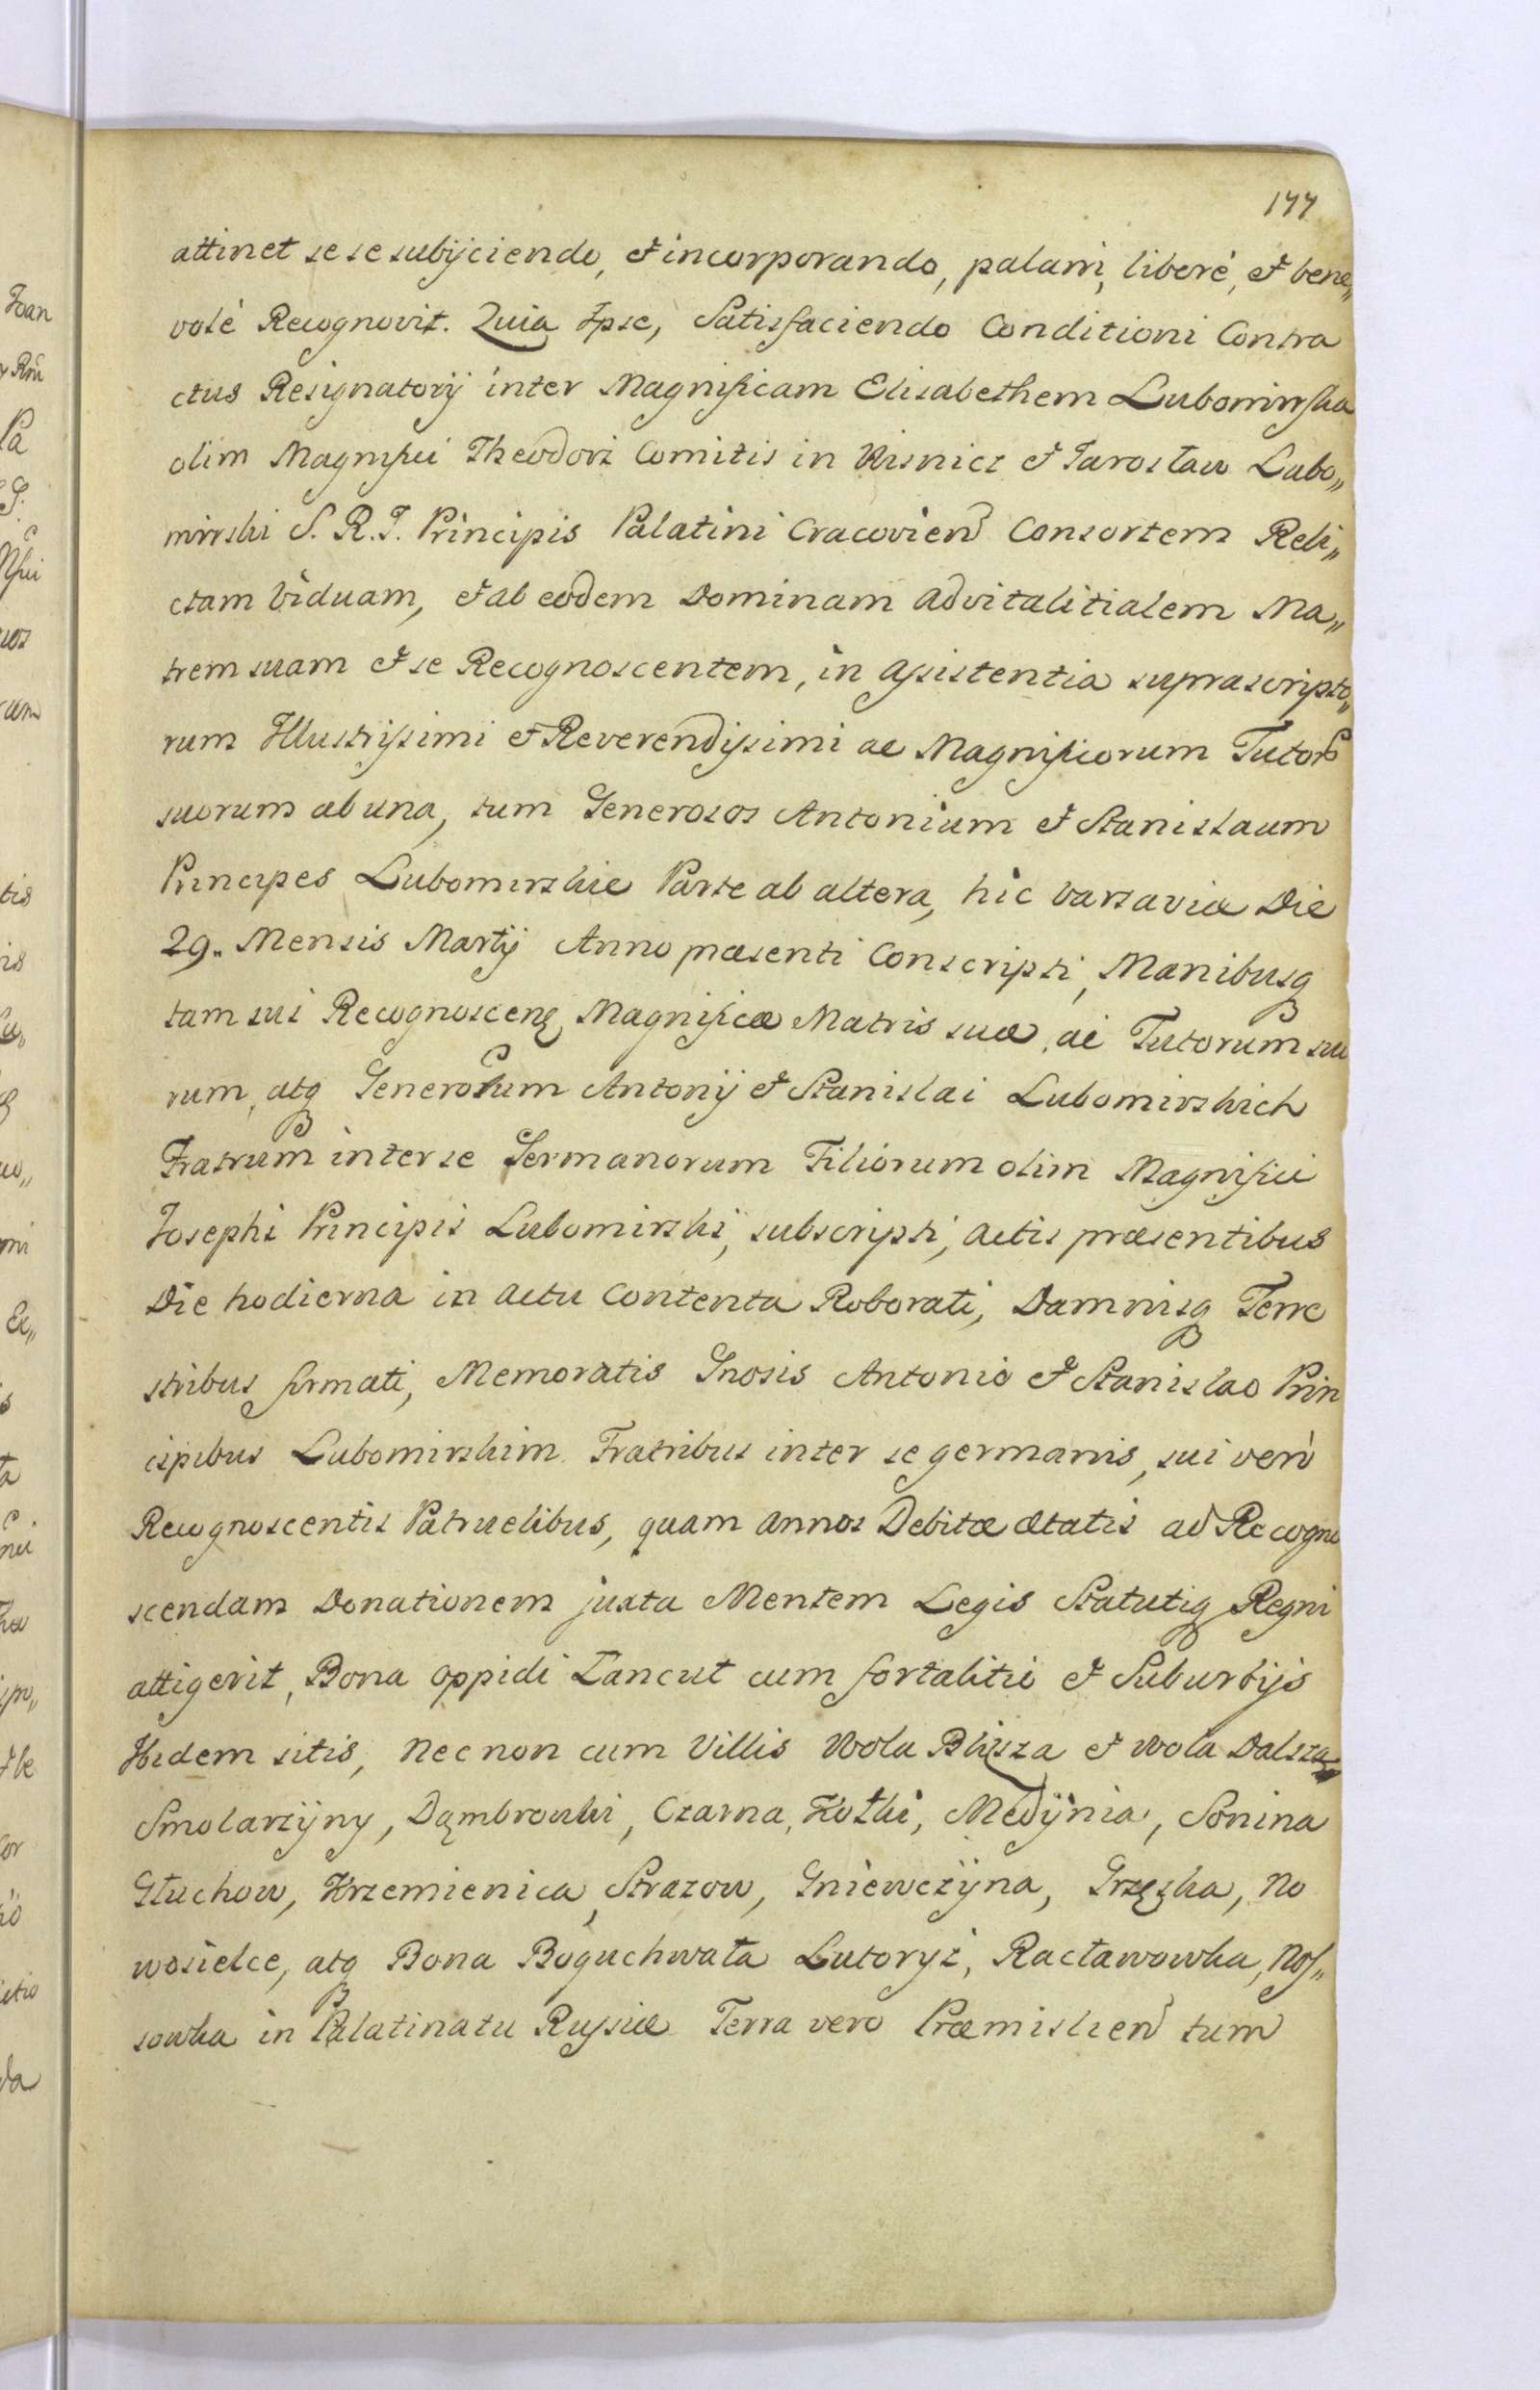 177
attinet sese subijciendo, et incorporando, palam, liberè, et bene„
volè Recognovit. Quia Ipse, Satisfaciendo Conditioni Contra
ctus Resignatorij inter Magnificam Elisabethem Lubomirska
olim Magnifici Theodori Comitis in Wisnicz et Jarosław Lubo„
mirski S. R. I. Principis Palatini Cracovien Consortem Reli„
ctam Viduam, et ab eodem Dominam advitalitialem Ma„
trem suam et se Recognoscentem, in assistentia suprascripto„
rum Illustrissimi et Reverendissimi ac Magnificorum Tutor
suorum ab una, tum Generosos Antonium et Stanislaum
Principes Lubomirskie Parte ab altera, hic Varsaviæ Die
29. Mensis Martij Anno præsenti Conscripti, Manibusq
tam sui Recognoscen Magnificæ Matris suæ, ac Tutorum suo
rum, atq Generorum Antonij et Stanislai Lubomirskich
Fratrum inter se Germanorum Filiorum olim Magnifici
Josephi Principis Lubomirski, subscripti, actis præsentibus
Die hodierna in actu Contenta Roborati, Damnisq Terre
stribus firmati, Memoratis Gnosis Antonio et Stanislao Prin
cipibus Lubomirskim Fratribus inter se germanis, sui verò
Recognoscentis Patruelibus, quam annos Debitæ ætatis ad Recogno
scendam Donationem juxta Mentem Legis Statutiq Regni
attigerit, Bona oppidi Łancut cum fortalitio et Suburbijs
Ibidem sitis, nec non cum Villis Wola Bliższa et Wola Dalsza
Smolarzyny, Dąmbrowki, Czarna, Kotki, Medynia, Sonina
Głuchow, Krzemienica, Strazow, Gniewczyna, Grzęska, No
wosielce, atq Bona Boguchwała Lutoryż, Racławowka, Nos„
sowka in Palatinatu Russiæ Terra vero Præmislien tum